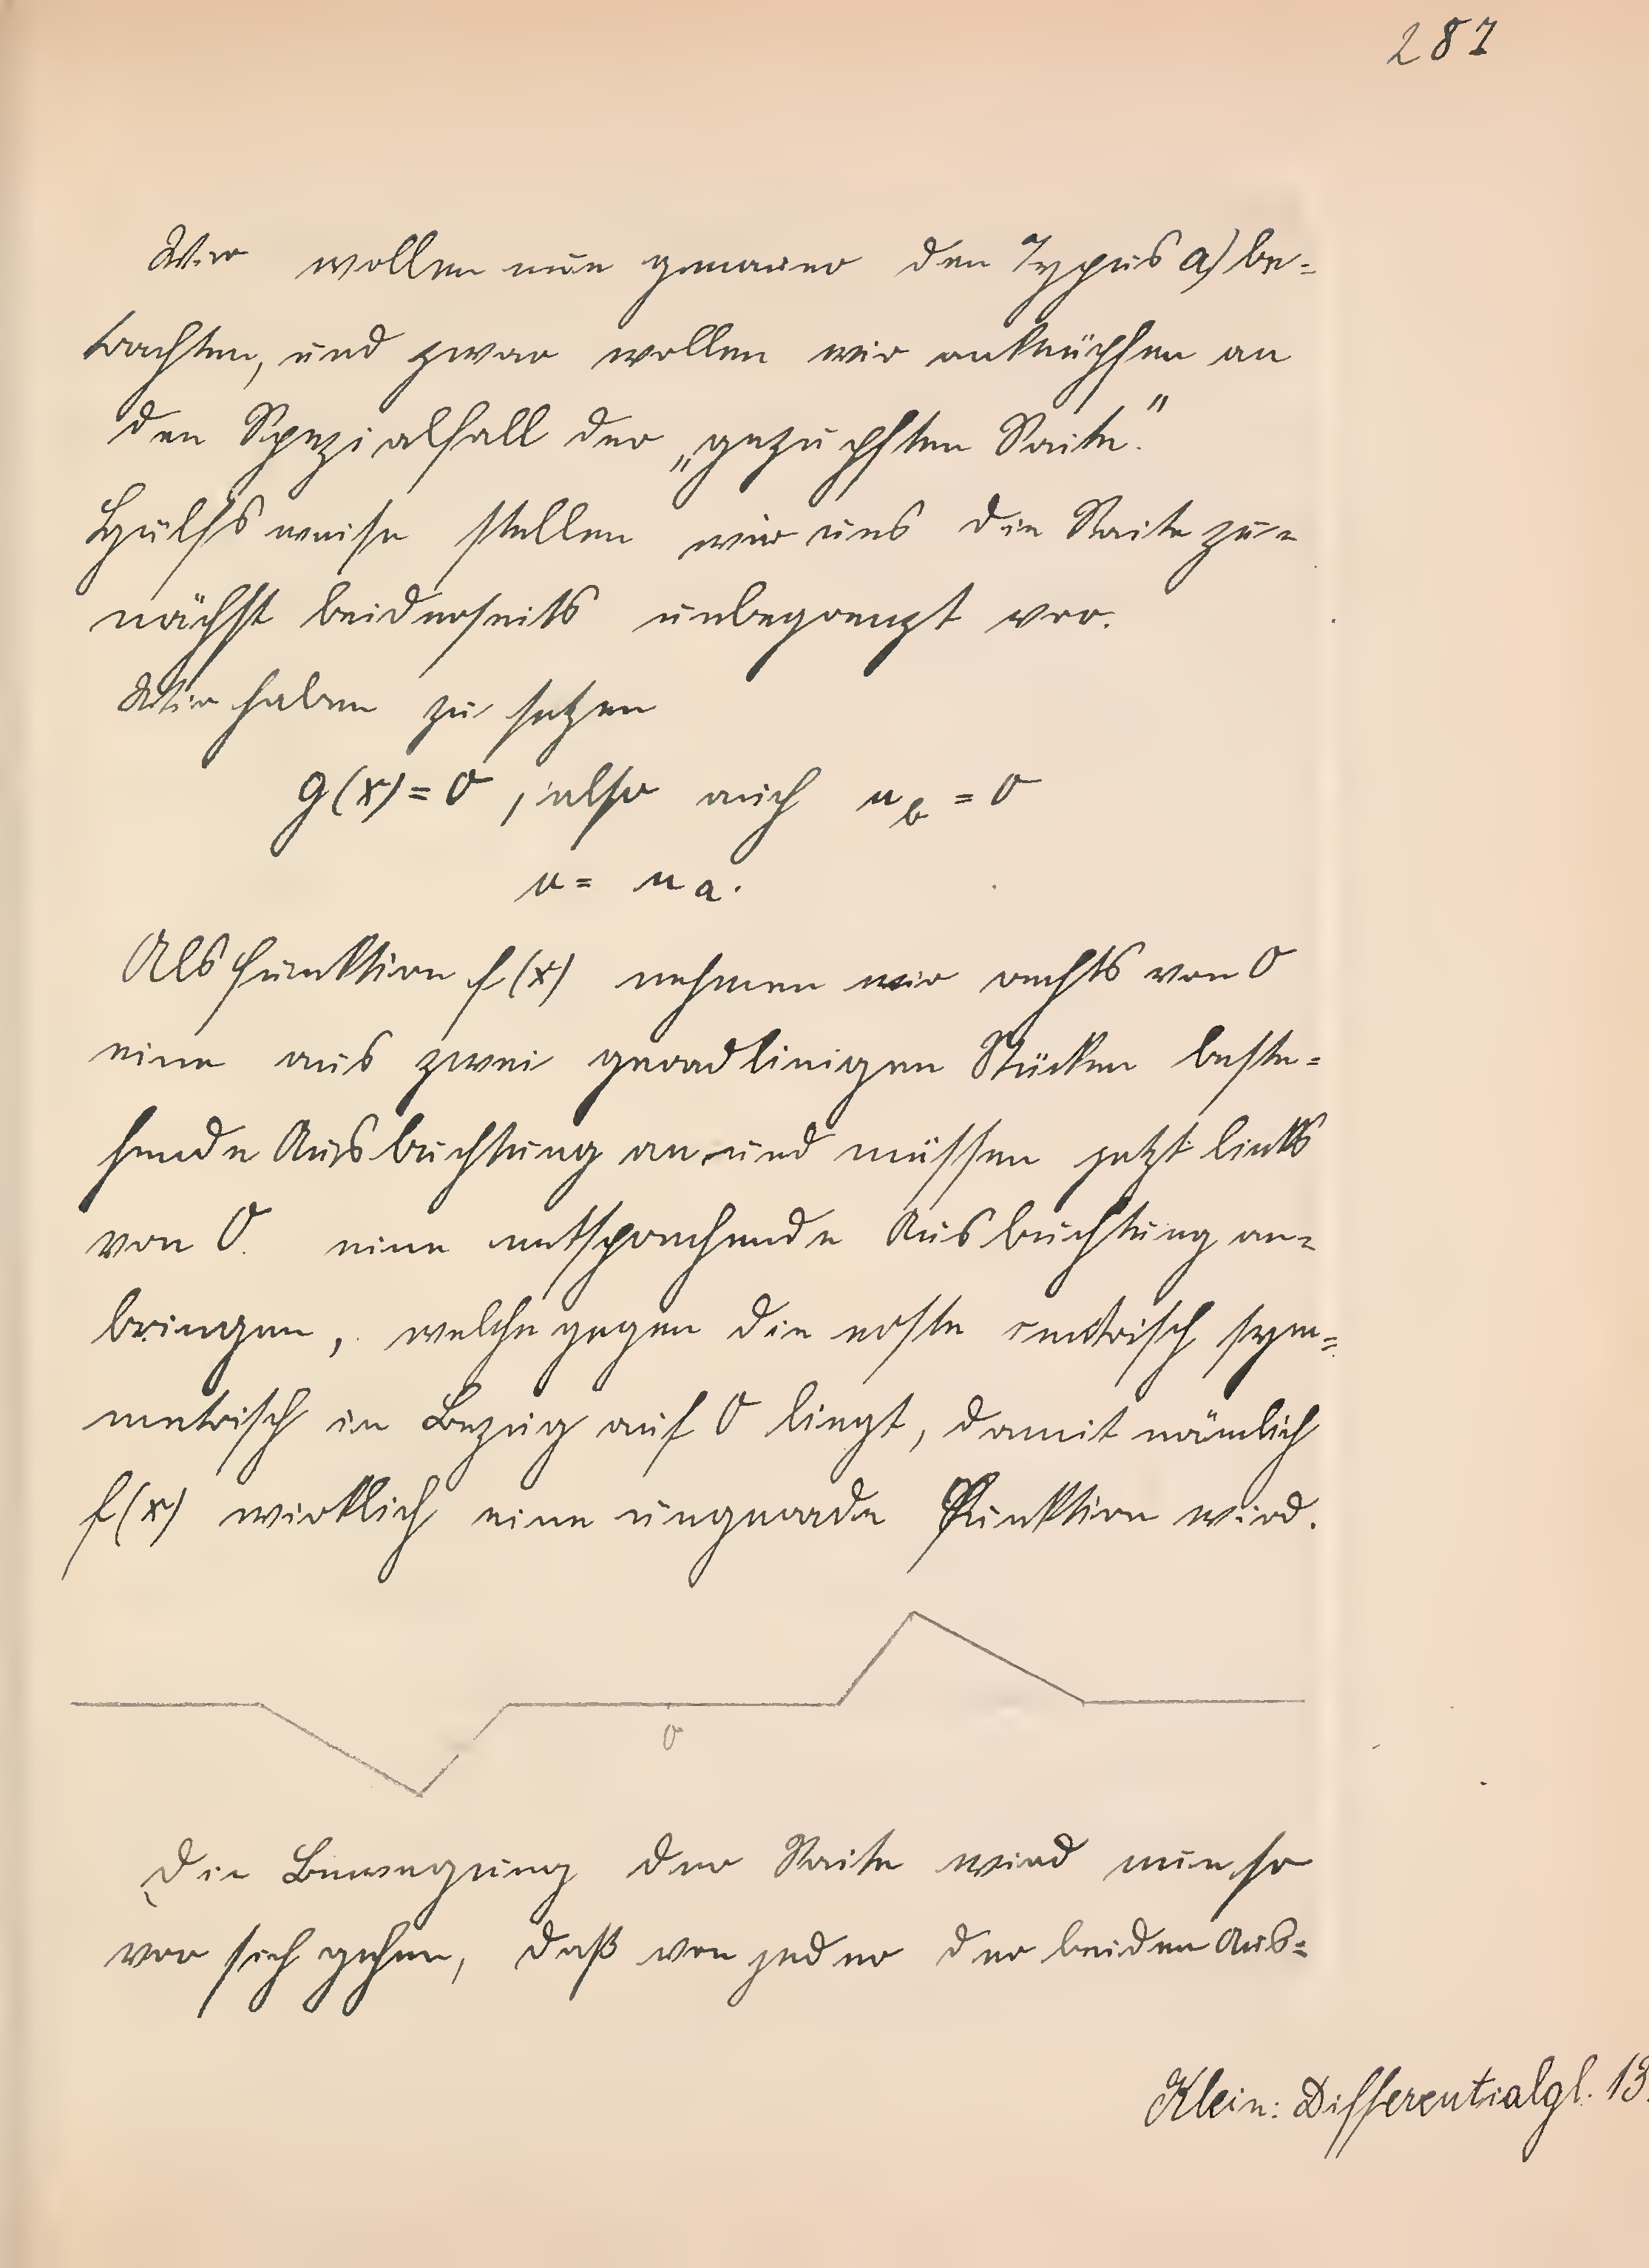 287
Wir wollen nun genauer den Typus a) be=
trachten, und zwar wollen wir anknüpfen an
den Spezialfall der „gezupften Saite."
Hülfsweise stellen wir uns die Saite zu=
nächst beiderseits unbegrenzt vor.
Wir haben zu setzen
g(x) = 0, also auch u_b = 0
u = u_a.
Als Funktion f(x) nehmen wir rechts von 0
eine aus zwei geradlinigen Stücken beste=
hende Ausbuchtung an und müssen jetzt links
von 0 eine entsprechende Ausbuchtung an=
bringen, welche gegen die erste centrisch sym=
metrisch in Bezug auf 0 liegt, damit nämlich
f(x) wirklich eine ungerade Funktion wird.
0
Die Bewegung der Saite wird nun so
vor sich gehen, daß von jeder der beiden Aus=
Klein: Differentialgl. 13.